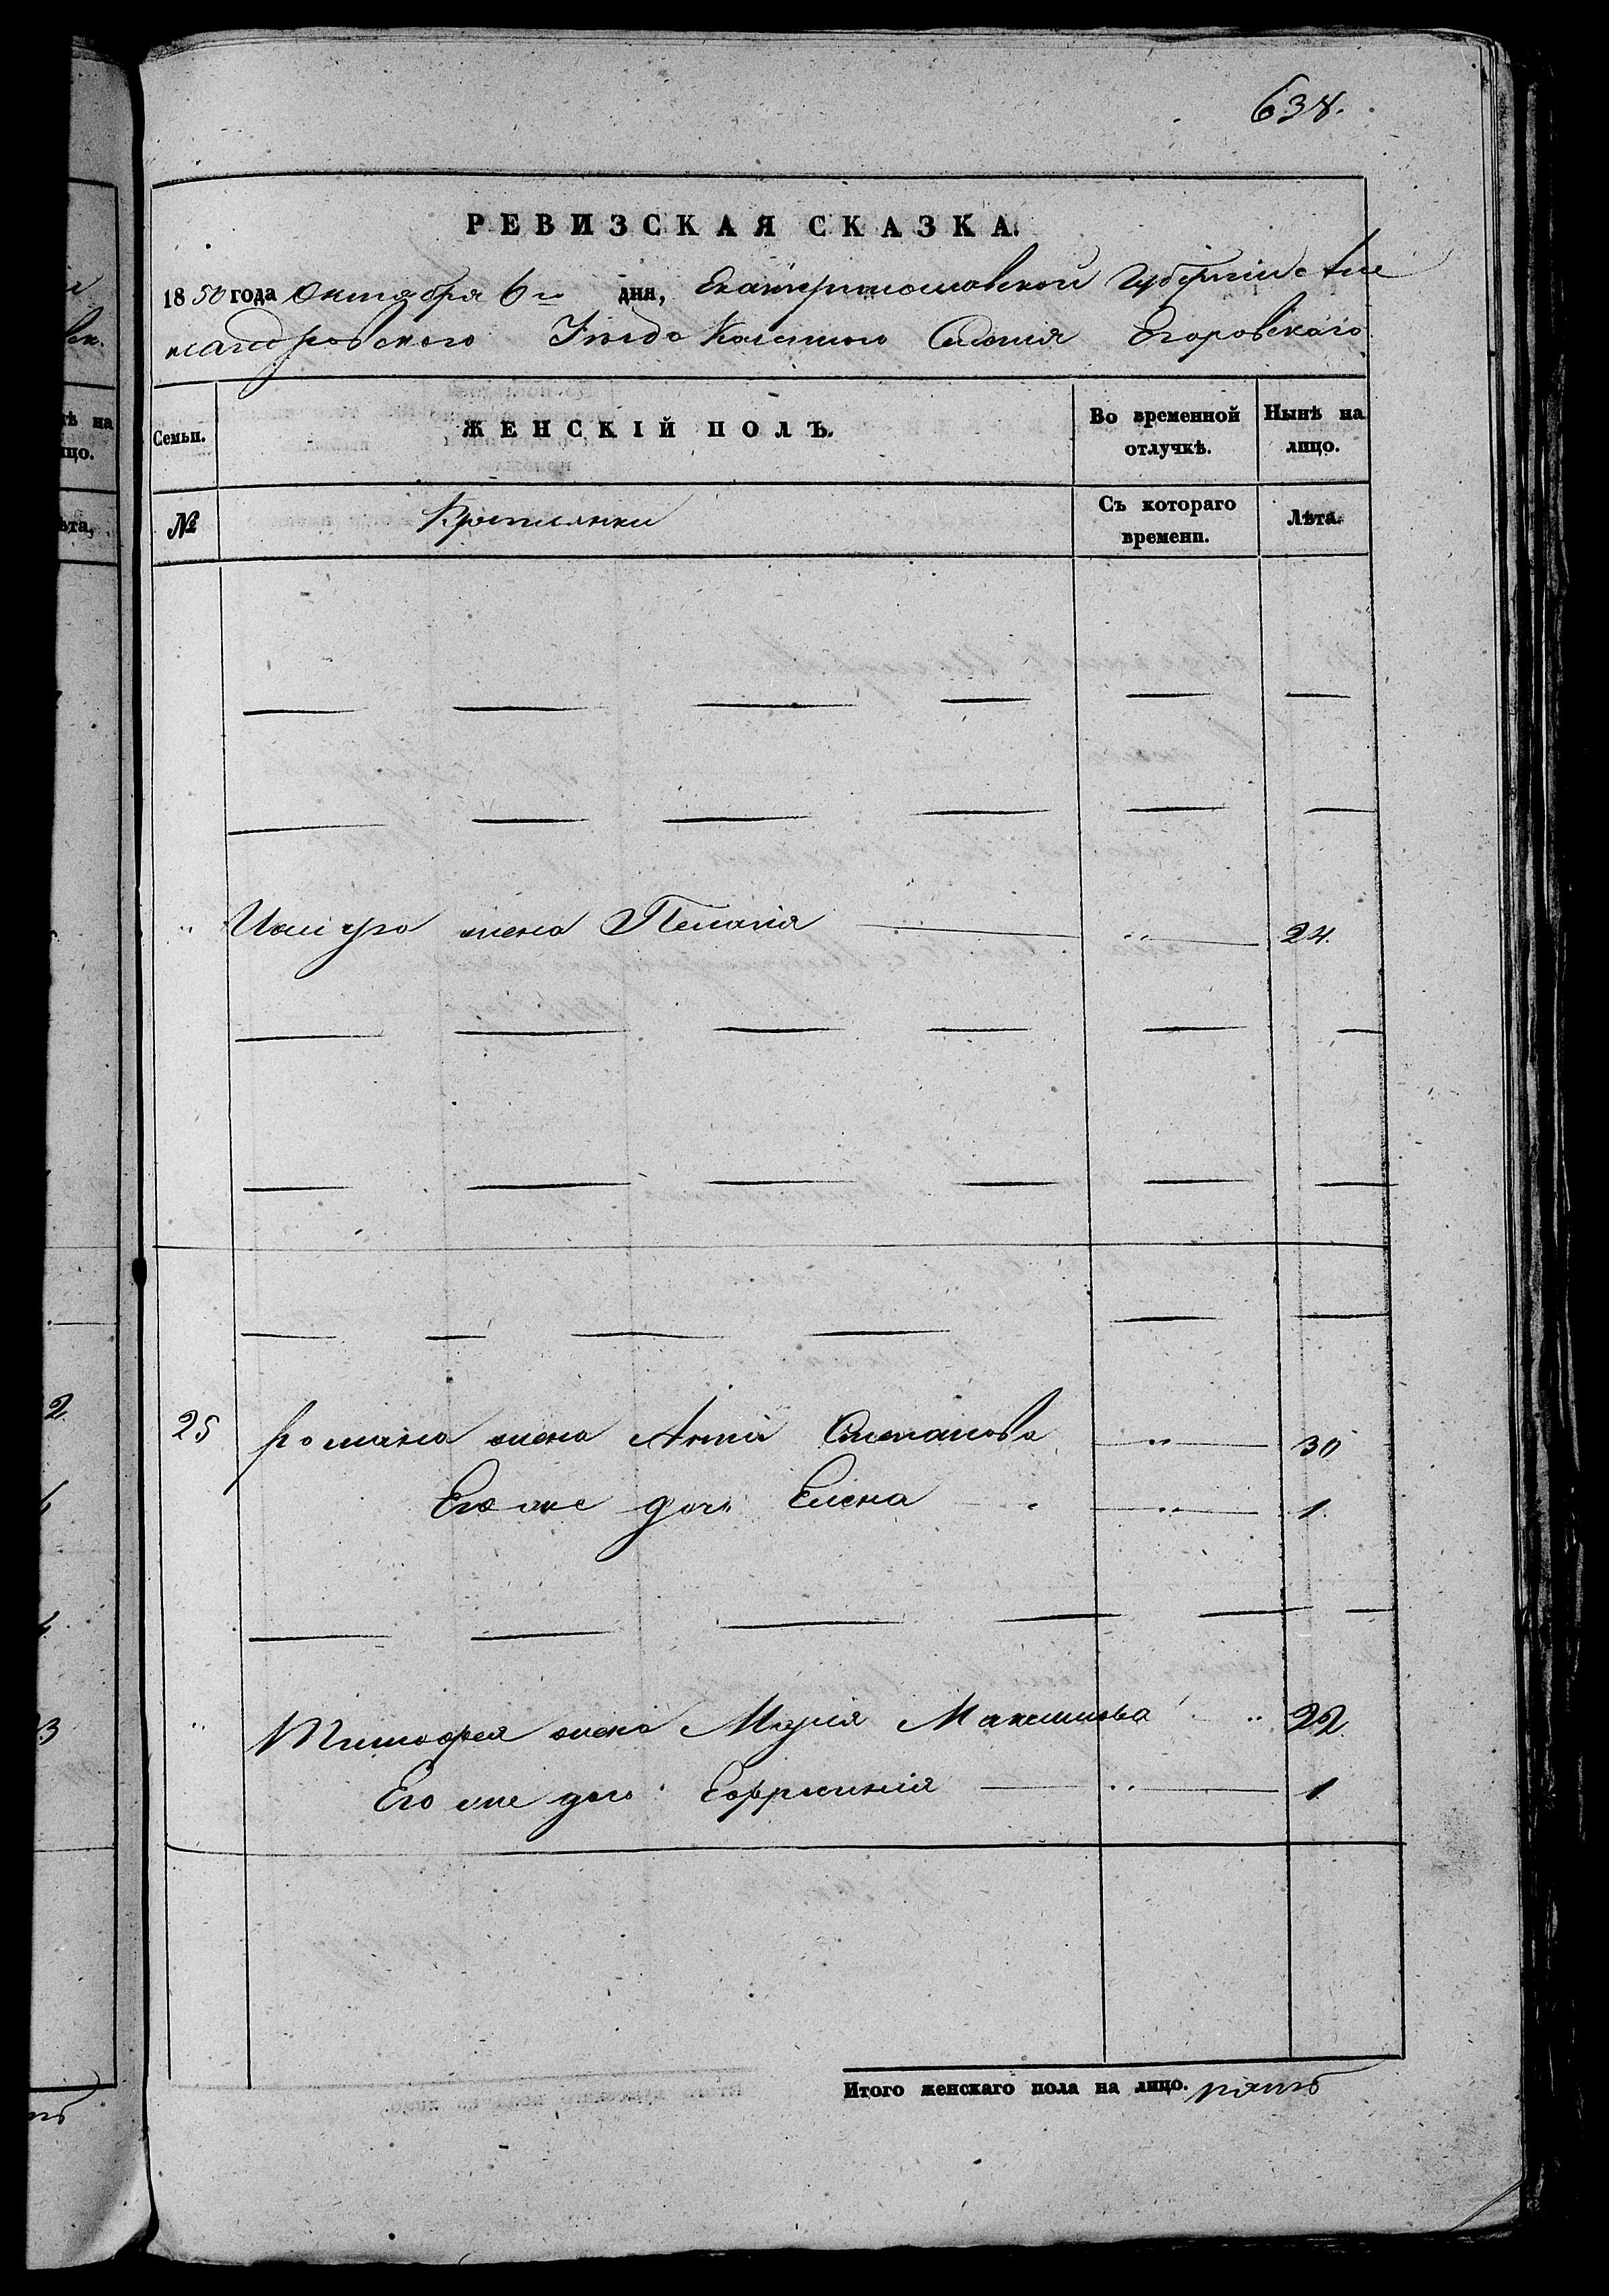 638.
РЕВИЗСКАЯ СКАЗКА.
1850 года Октября 6го дня, Екатеринославской Губернiи Але
ксандровского Уѣзда Казенного Селенiя Егоровскаго
Семьи.
ЖЕНСКІЙ ПОЛЪ.
Во временной отлучкѣ.
Нынѣ на лицо.
№
Крестьянки
Съ котораго времени.
Лѣта.
" жена Пелагiя " 24.
25 Романа жена Анна Степанова " 30
Его же дочь Елена " 1.
" Тимофея жена Марiя Максимова " 22.
Его же дочь Ефросинiя " 1
Итого женскаго пола на лицо. пять